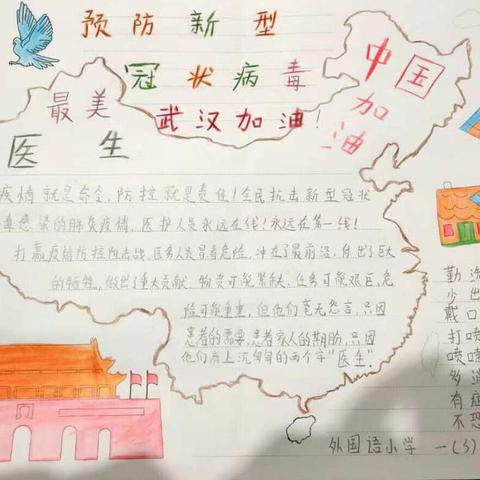 预防新型
冠状病毒
武汉加油!
中国
加油
最美
医生
疫情就是命令,防控就是责任!全民抗击新型冠状
毒感染的肺炎疫情,医护人员永远在线!永远在第一线!
打赢疫情防控阻击战,医务人员冒着危险,冲在了最前沿,付出了巨大
的牺牲,做出了重大贡献.物资可能紧缺、任务可能艰巨,危
险可能重重,但他们毫无怨言,只因
患者的需要,患者家人的期盼,只因
他们肩上沉甸甸的两个字"医生".
勤洗
少出
戴口
打喷
喷嚏
多消
有症
不恐
外国语小学 一(3)